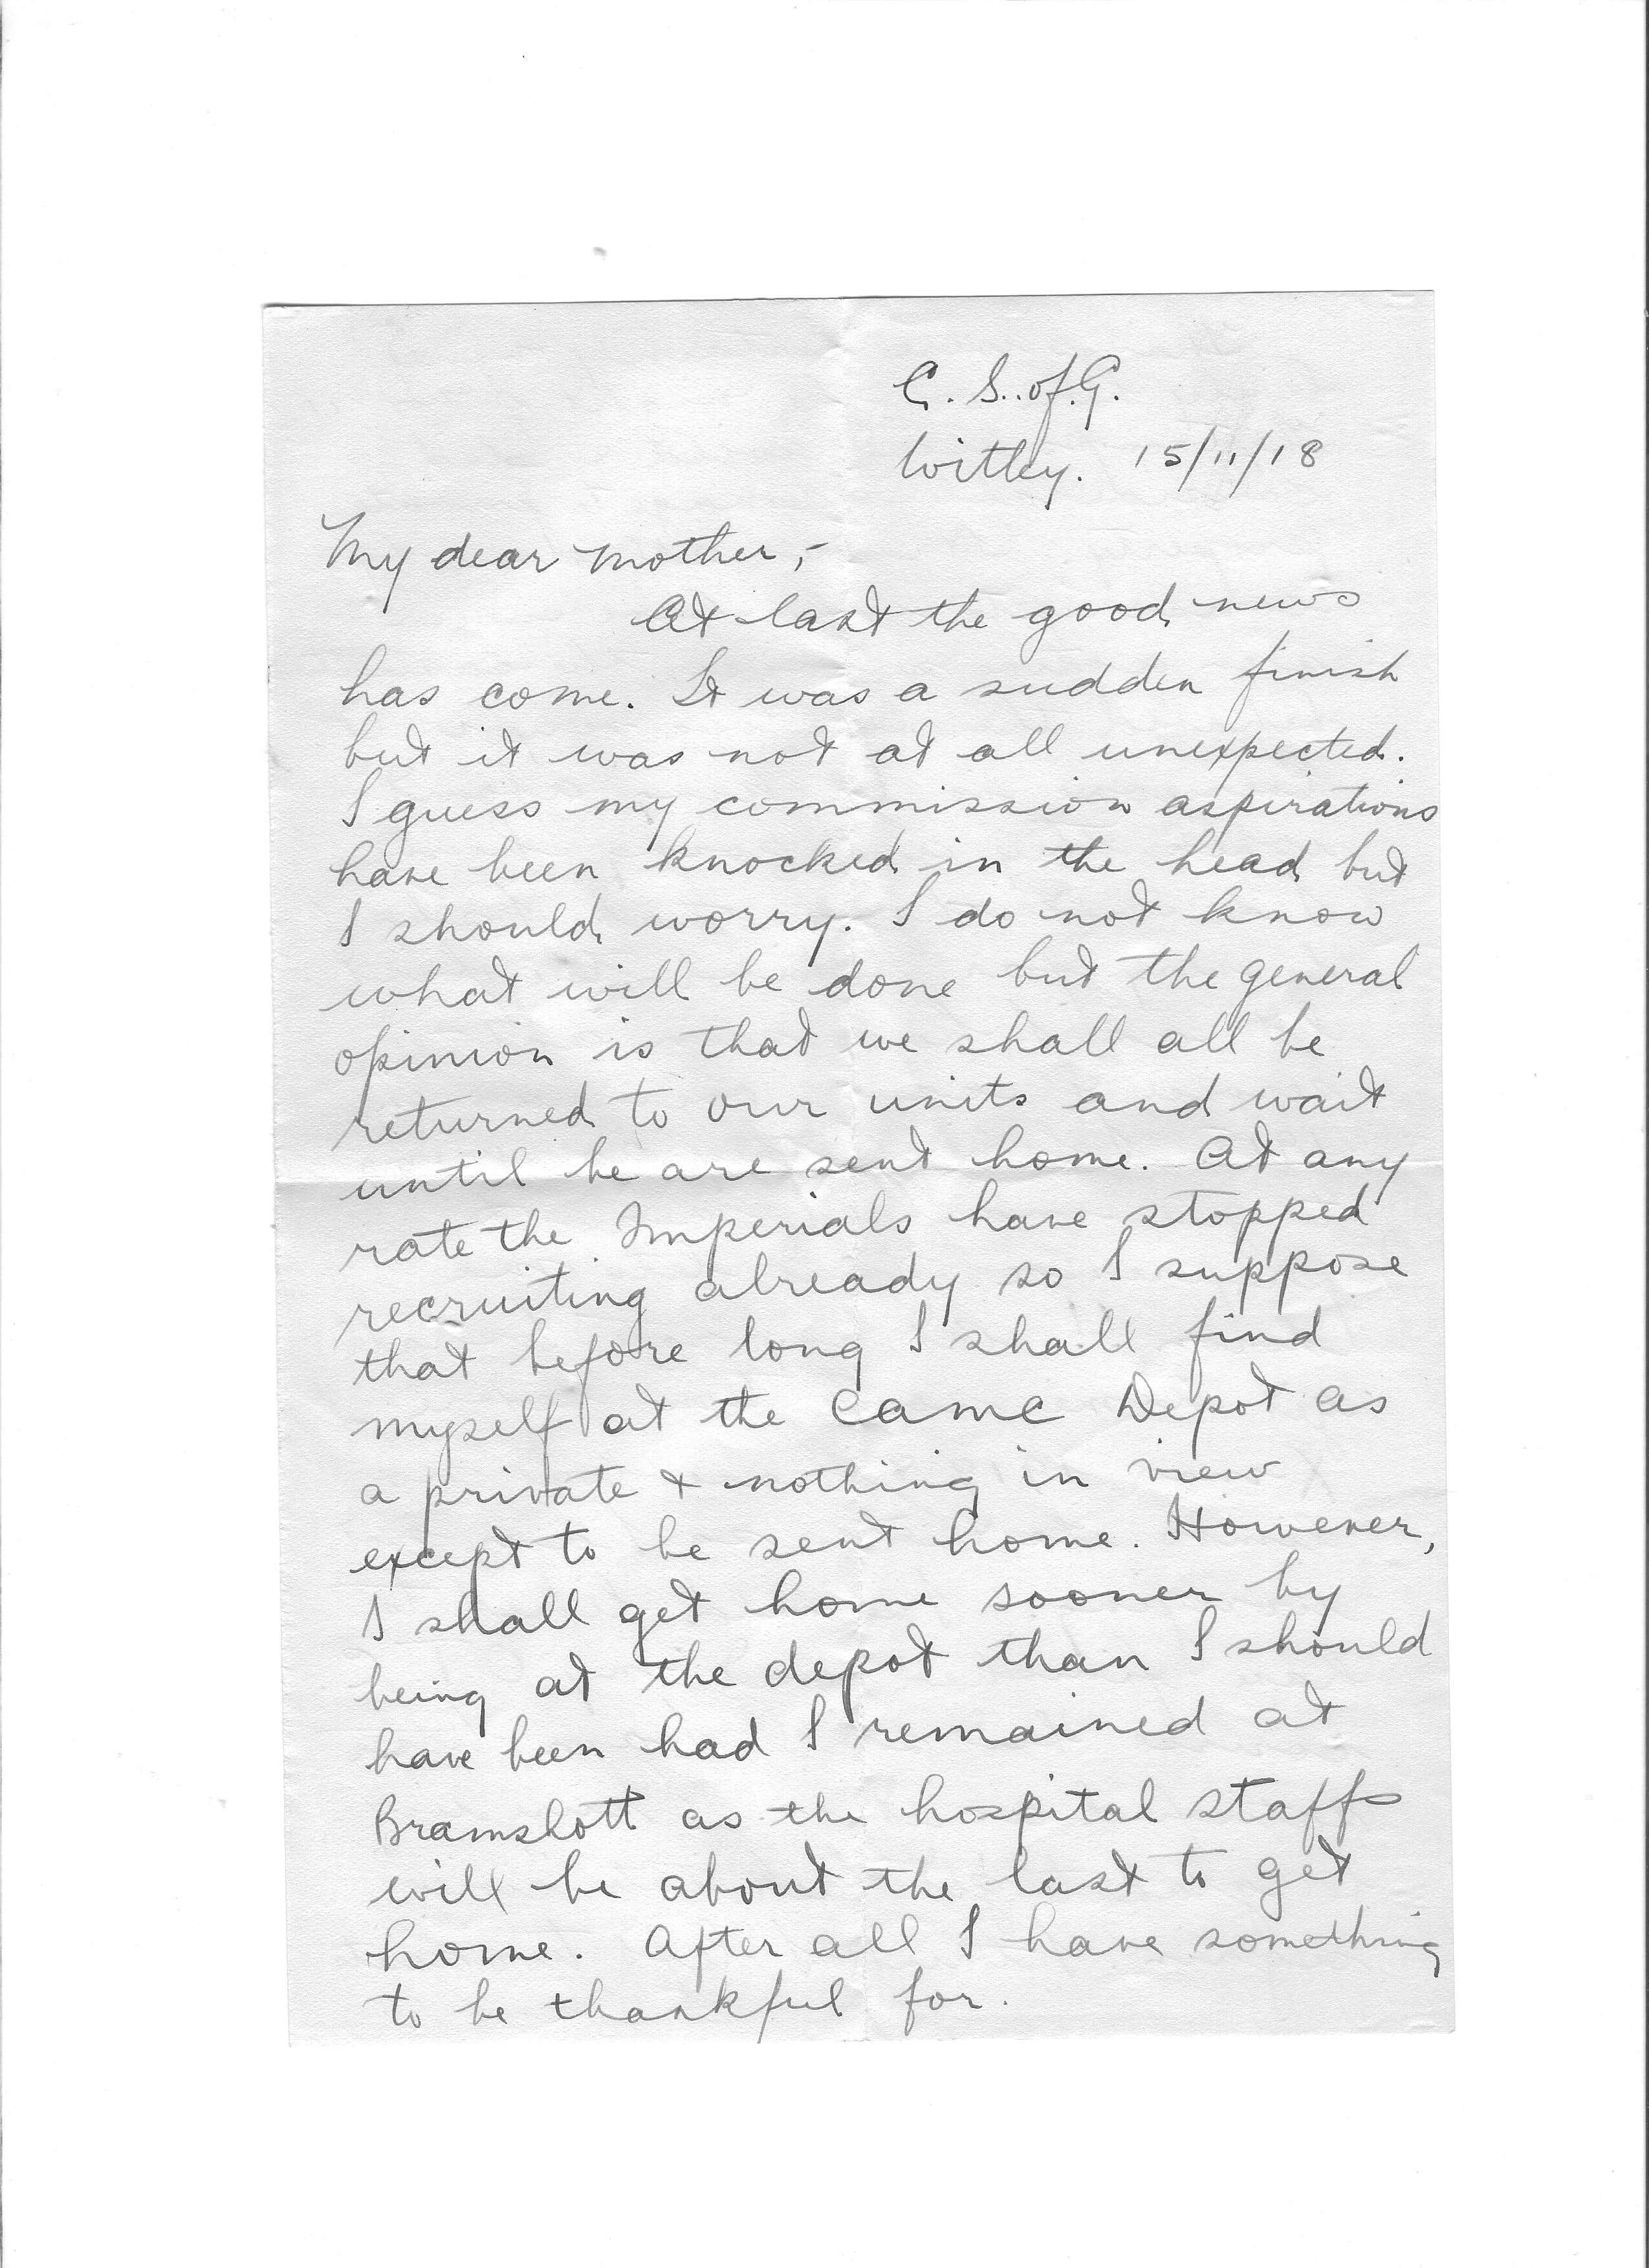 C. S. of. G.
Witley. 15/11/18
My dear Mother,-
At last the good news
has come. It was a sudden finish
but it was not at all unexpected.
I guess my commission aspirations
have been knocked in the head but
I should worry. I do not know
what will be done but the general
opinion is that we shall all be
returned to our units and wait
until he are sent home. At any
rate the Imperials have stopped
recruiting already so I suppose
that before long I shall find
myself at the CAMC Depot as
a private & nothing in view
except to be sent home. However,
I shall get home sooner by
being at the depot than I should
have been had I remained at
Bramshott as the hospital staffs
will be about the last to get
home. After all I have something
to be thankful for.